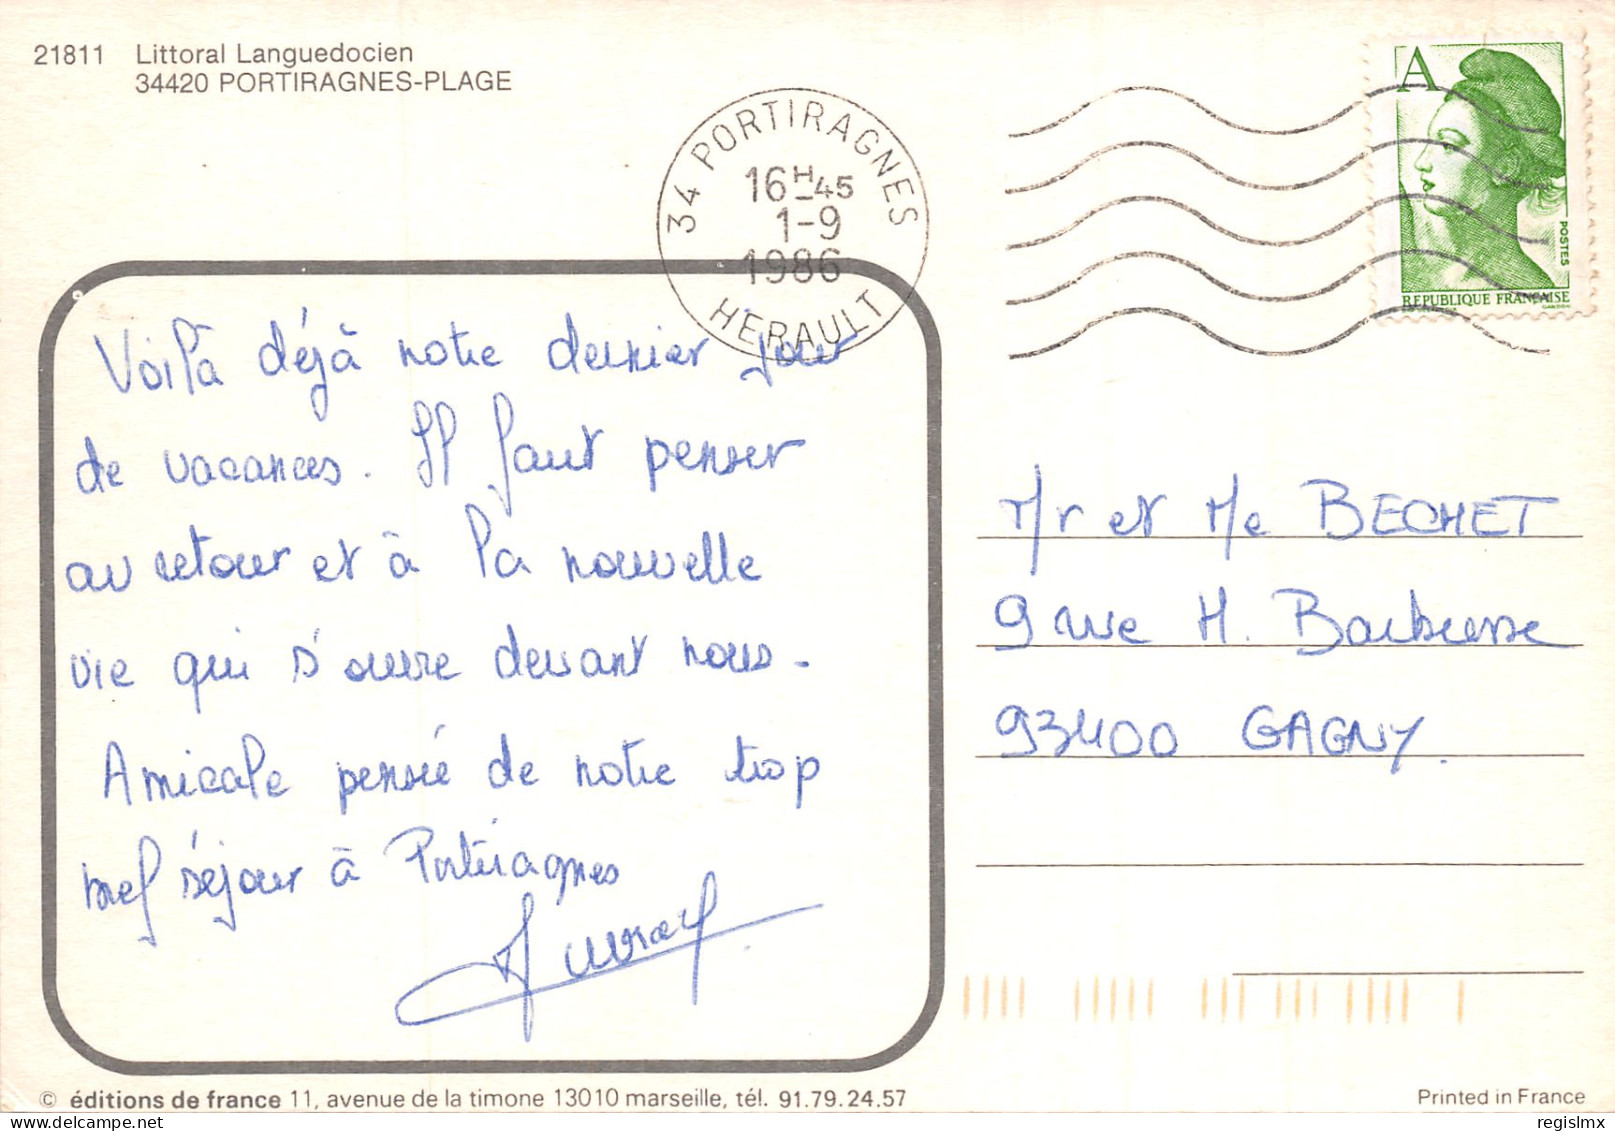 21811 Littoral Languedocien
34420 PORTIRAGNES-PLAGE
34 PORTIRAGNES
16H45
1-9
1986
HERAULT
A
POSTES
REPUBLIQUE FRANÇAISE
Voilà déjà notre dernier jour
de vacances. Il faut penser
au retour et à la nouvelle
vie qui s'ouvre devant nous.
Amicale pensée de notre trop
bref séjour à Portiragnes
Mr et Me BECHET
9 rue H. Barbusse
93400 GAGNY.
© éditions de france 11, avenue de la timone 13010 marseille, tél. 91.79.24.57
Printed in France
regislmx